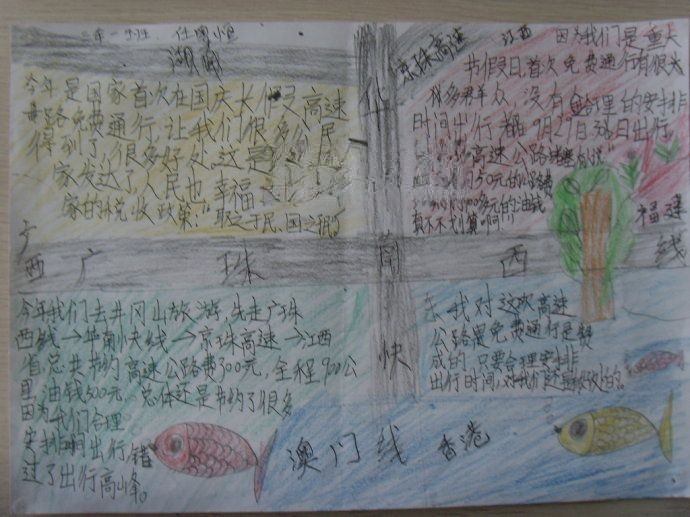 湖南
今年是国家首次在国庆长假又高速
公路免费通行,让我们很多人民
得到了很多好处,这是
家发达了人民也幸福
家的税收政策:"取之于民,国之
京珠高速 江西
因为我们是重大
节假日首次免费通行有很大
很多君羊众,没有合理的安排
时间出行都9月29日30日出行
高速公路
50元的
的油钱
真不不划算啊!
福建
西广珠
华南快
西线
今年我们去井冈山旅游,先走广珠
西线→华南快线→京珠高速→江西
省总共节约高速公路费700元,全程900公
里,油钱500元,总体还是节约了很多
因为我们合理
安排时间出行,错
过了出行高峰。
我对这次高速
公路免费通行是赞
成的,只要合理安排
出行时间,对我们还是
澳门线 香港